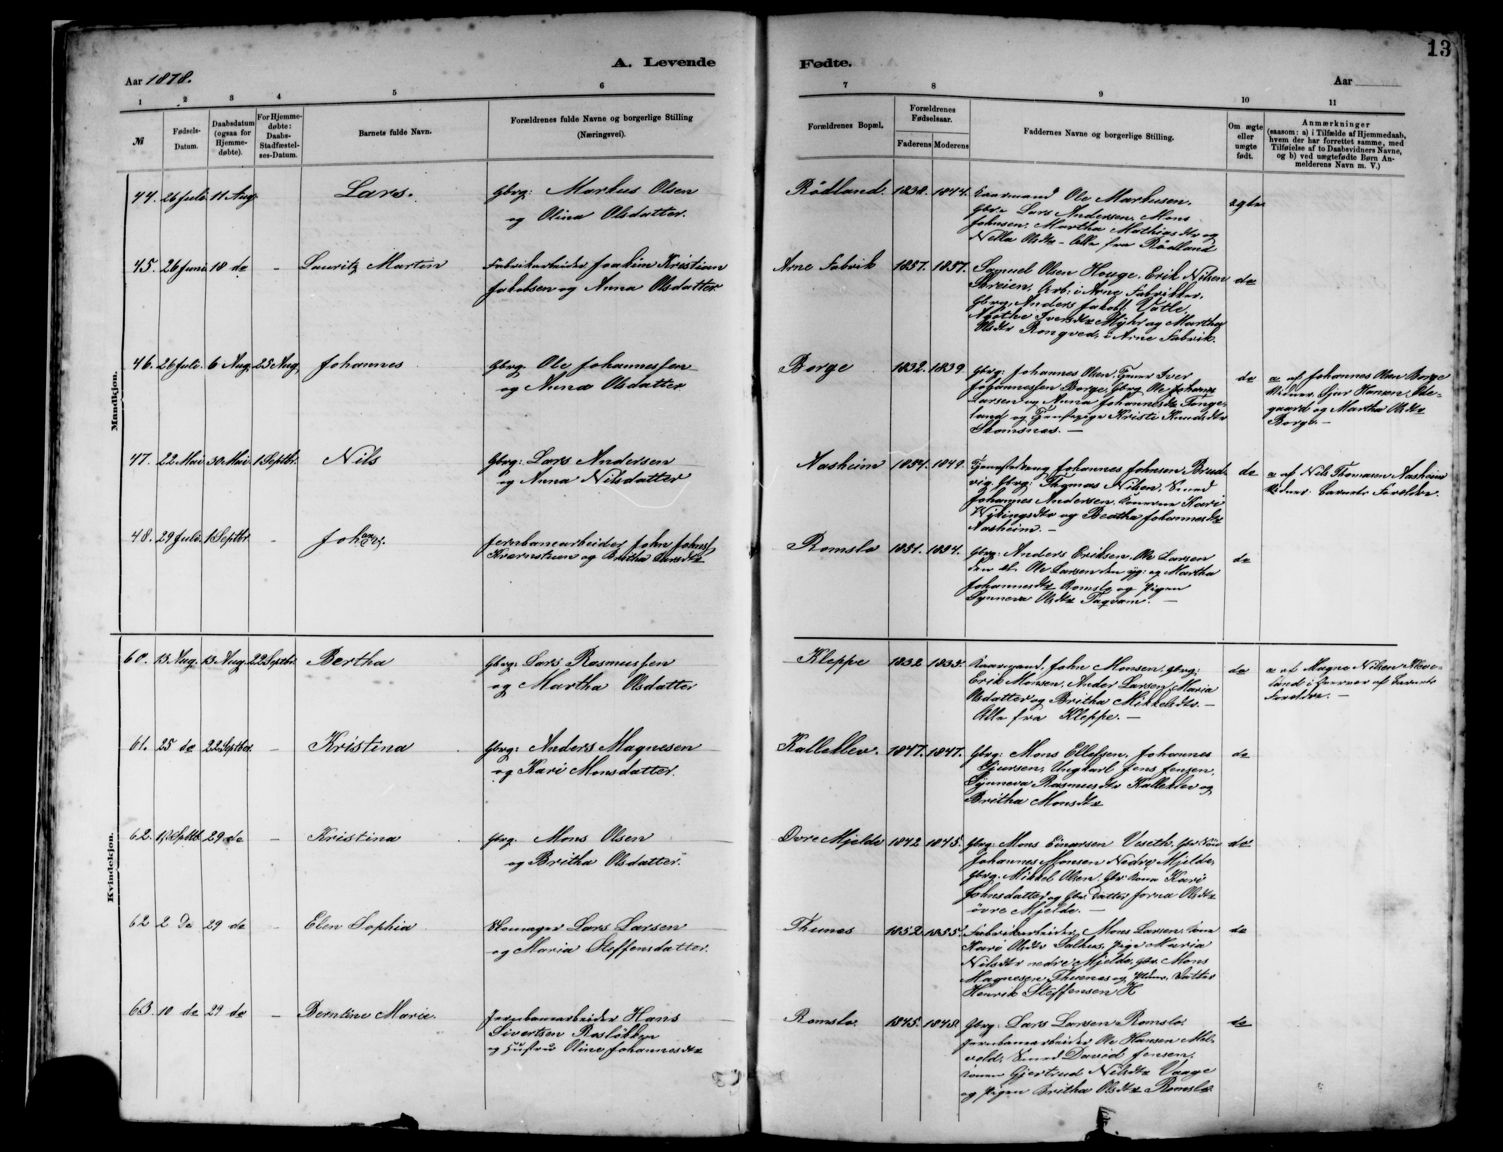 13
Aar 1878.
A. Levende
Fødte.
Aar
1 2 3 4 5 6 7 8 9 10 11
№
Fødsels-
Datum.
Daabsdatum
(ogsaa for
Hjemme-
døbte).
For Hjemme-
døbte:
Daabs-
Stadfæstel-
ses-Datum.
Barnets fulde Navn.
Forældrenes fulde Navne og borgerlige Stilling
(Næringsvei).
Forældrenes Bopæl.
Forældrenes
Fødselsaar.
Faderens
Moderens
Faddernes Navne og borgerlige Stilling.
Om ægte
eller
uægte
født.
Anmærkninger
(saasom: a) i Tilfælde af Hjemmedaab,
hvem der har forrettet samme, med
Tilføielse af to Daabsvidners Navne,
og b) ved uægtefødte Børn An-
melderens Navn m. V.)
Mandkjøn.
44. 26 Juli 11 Aug. Lars. Gbrg: Markus Olsen
og Olina Olsdatter.
Rødland 1838. 1844. Ole Markusen,
Lars Andersen, Mons
Johnsen, Martha Mathiasdtr og
Nilla Olsdtr - Alle fra Rødland
45. 26 Juni 18 de - Lauritz Martin Fabrikarbeider Joakim Kristian
Jakobsen og Anna Olsdatter
Arne Fabrik 1857. 1857. Samuel Olsen Houge, Erik Nilsen
Arb: i Arne Fabrikker,
Gbrg. Anders Jakobs.
og Martha
Olsdtr Rongved, i Arne Fabrik.
de
46. 26 Juli 6 Aug. 25 Aug. Johannes Gbrg. Ole Johannessen
og Anna Olsdatter
Borge 1832. 1839. Gbrg: Johannes Olsen, Iver
Johannessen Borge, Gbrg. Ole
Larsen og Anna Johannesdtr
og Kristi Knudsdtr
de
a af Johannes Olsen Borge
Hansen
og Martha Olsdtr
Borge. -
47. 22 Mai 30 Mai 1 Septbr. Nils Gbrg: Lars Andersen
og Anna Nilsdatter
Aasheim 1854. 1849. Johannes Johnsen
Gbrg: Thomas Nilsen, Smed
Johannes Andersen, Kari
og Beatha Johannesdtr
Aasheim. -
de
a af Nils Thomasen Aasheim
Vidner: Barnets Foreldre.
48. 29 Juli 1 Septbr. Johan Jernbanearbeider John Johns.
og Britha Larsdtr
Romslo 1851. 1854. Gbrg: Anders Eriksen, Ole Larsen
den æl. Ole Larsen den yg: og Martha
Johannesdtr Romslo og Pigen
Synneva Olsdtr -
de
Kvindekjøn.
60. 13 Aug. 13 Aug. 22 Septbr. Bertha Gbrg: Lars Rasmussen
og Martha Olsdatter
Kleppe 1832 1835. John Monsen, Gbrg:
Erik Monsen, Anders Larsen, Maria
Olsdatter og Britha Mikkelsdtr. -
Alle fra Kleppe. -
de
a af Magne Nilsen
af Barnets
Foreldre. -
61. 25 de 22 Septbr. - Kristina Gbrg: Anders Magnesen
og Kari Monsdatter.
Kalleklev. 1847. 1847. Gbrg: Mons Ellefsen, Johannes
Ungkarl Jens Jensen,
Synneva Rasmusdtr Kalleklev og
Britha Monsdtr
de
62. Septb. 29 de - Kristina Gbrg. Mons Olsen
og Britha Olsdatter.
Øvre Mjelde 1842 1845. Gbrg: Mons Einarsen Veseth,
Johannes Monsen Nedre Mjelde,
Gbrg. Mikkel Olsen, Kona Kari
Johnsdatter og Datter Jorna Olsdtr
øvre Mjelde. -
de
62 2 De 29 de - Elen Sophia Skomager Lars Larsen
og Maria Steffensdatter.
Thunes 1852 1855. Fabrikarbeider Mons Larsen, Kone
Kari Olsdtr Salhus, Pige Maria
Nilsdtr nedre Mjelde, Gbr. Mons
Magnesen Thunes og Datter
Henrik Steffensen
de
63 10 de 29 de - Berntine Marie. Jernbanearbeider Hans
Sivertsen
og Hustru Oline Johannesdtr
Romslo 1845. 1848. Gbrg: Lars Larsen Romslo.
Jernbanearbeider Ole Hansen
Smed David Jensen,
Konen Gjertrud Nilsdtr Vaage
og Pigen Britha Olsdtr Romslo.
de